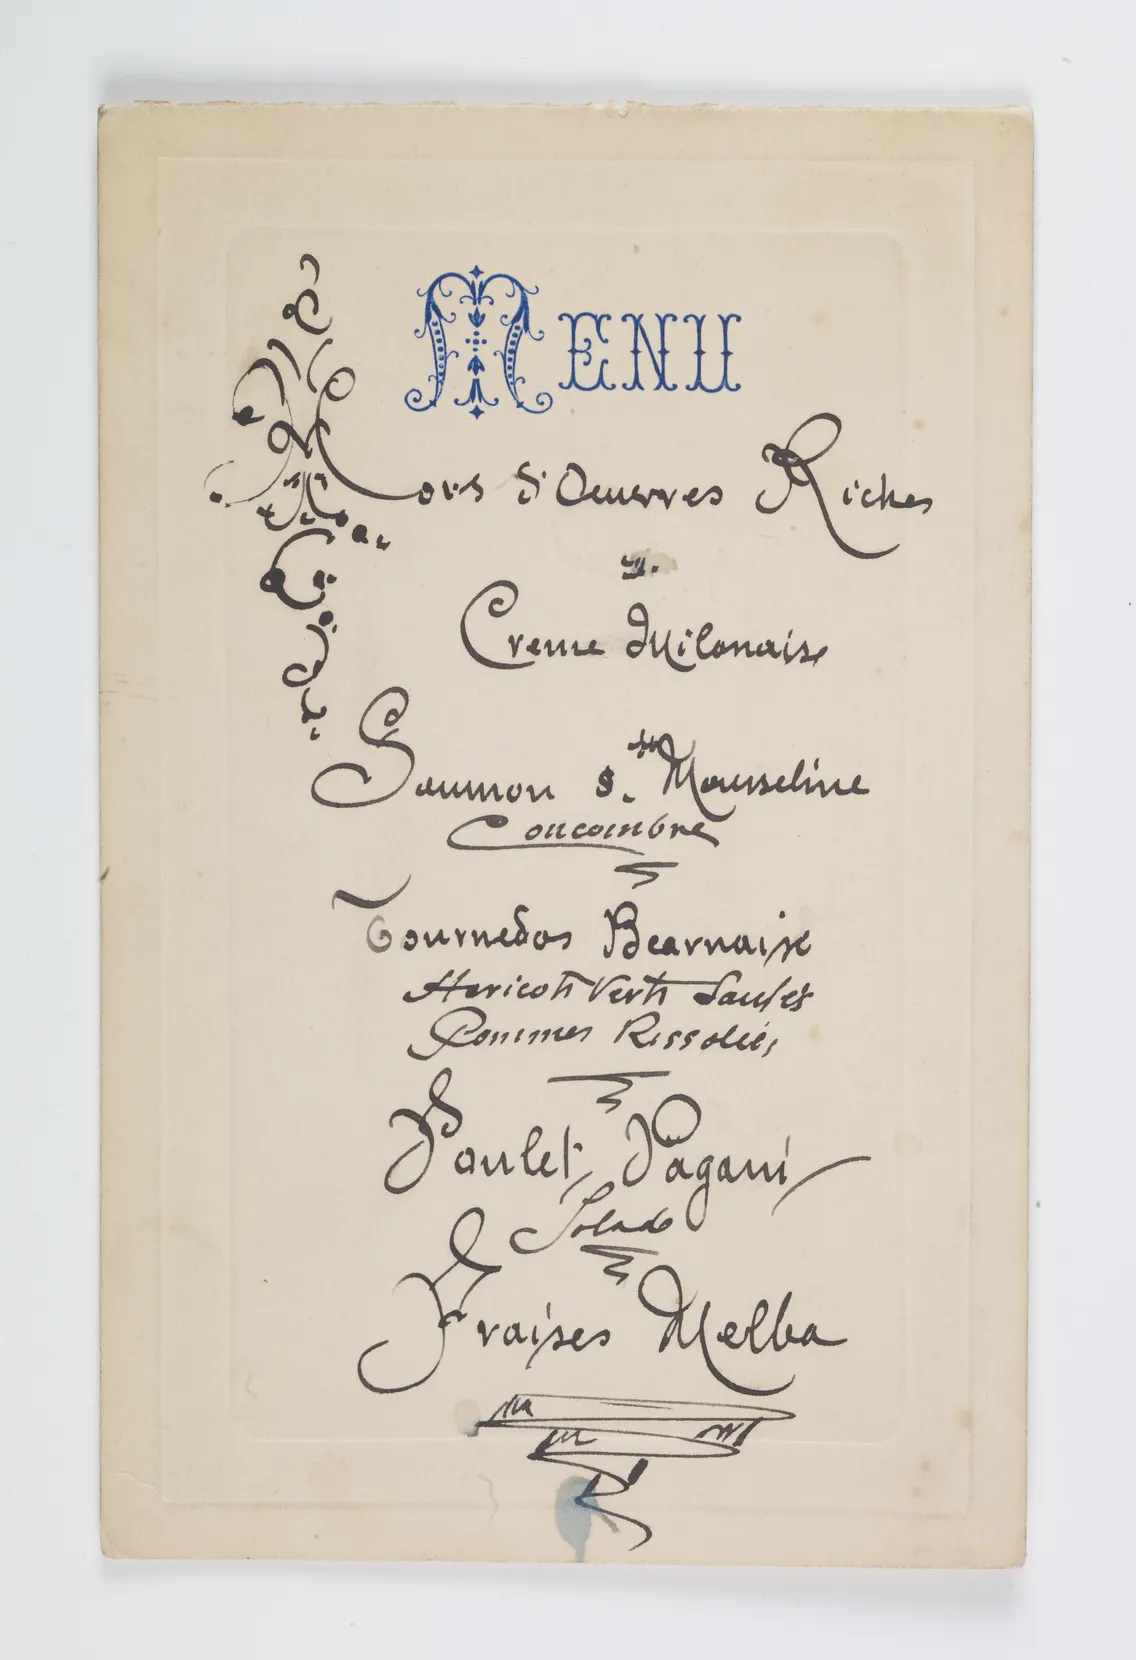 MENU
Hors d'Oeuvres Riches
Creme Milanaise
Saumon s. Mousseline
Concombre
Tournedos Bearnaise
Haricots Verts Sautés
Pommes Rissolées
Poulet Pagani
Salade
Fraises Melba